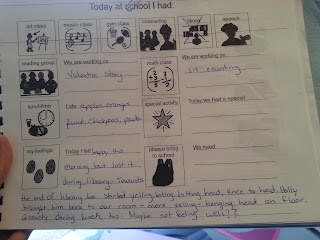 Today at school I had:
art class music class gym class counseling library speech
reading group
We are working on
Valentine Story
math class
We are working on
1-1 counting
lunchtime
I ate apples, oranges
fruit, chickpeas, pasta
special activity
Today we had a special
my feelings
Today I felt happy the
morning but lost it
during library. Towards
please bring to school
We need
the end of library he started yelling, biting, hitting head, knee to head. Holly
brought him back to our room - more yelling - banging head on floor.
during lunch too. Maybe not feeling well??